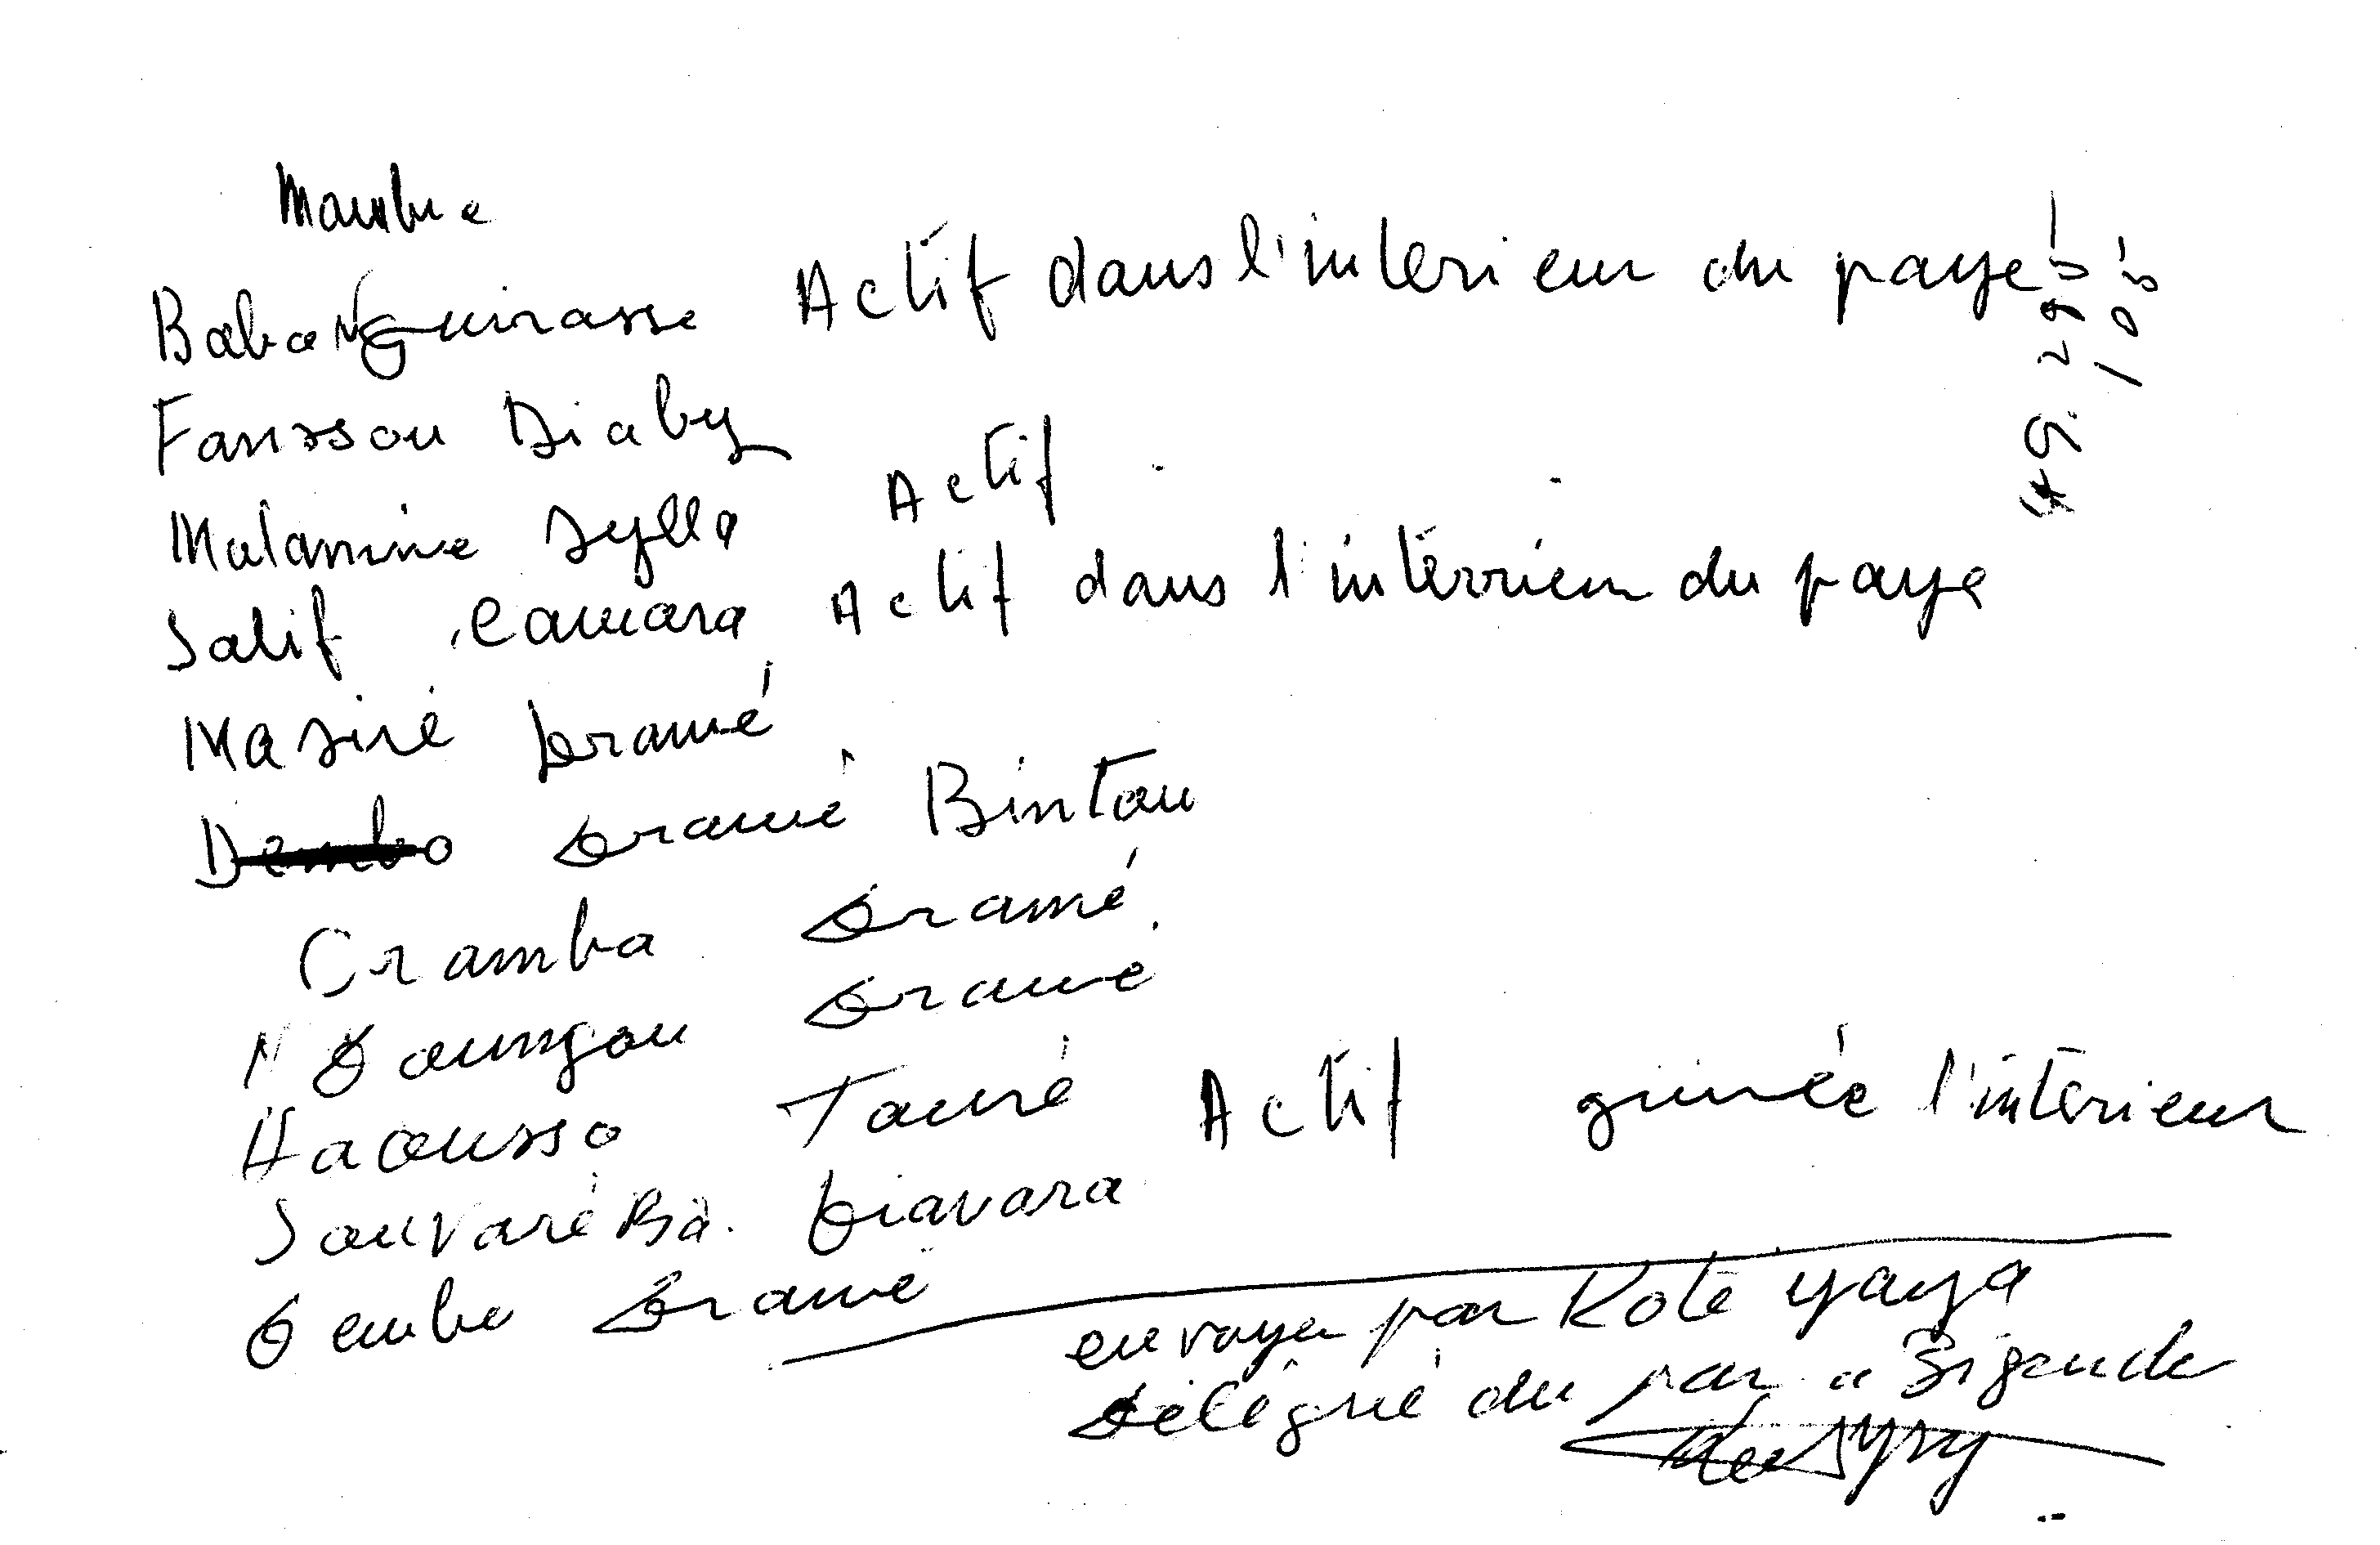 Mambre
Baba N Guirasse Actif dans l'interieur du paye
Fansson Diaby
Malamine Sylla Actif
Salif Camara Actif dans l'intérrieur du paye
Masiré Dramé
Dembo Dramé Bintou
Cramba Dramé
N Doungou Dramé
Haousso Touré Actif guinée l'intérieur
Souvaré Bà. Diavara
Dembo Dramé
envoyer par Koté yaya
Délégué du par a Bigende